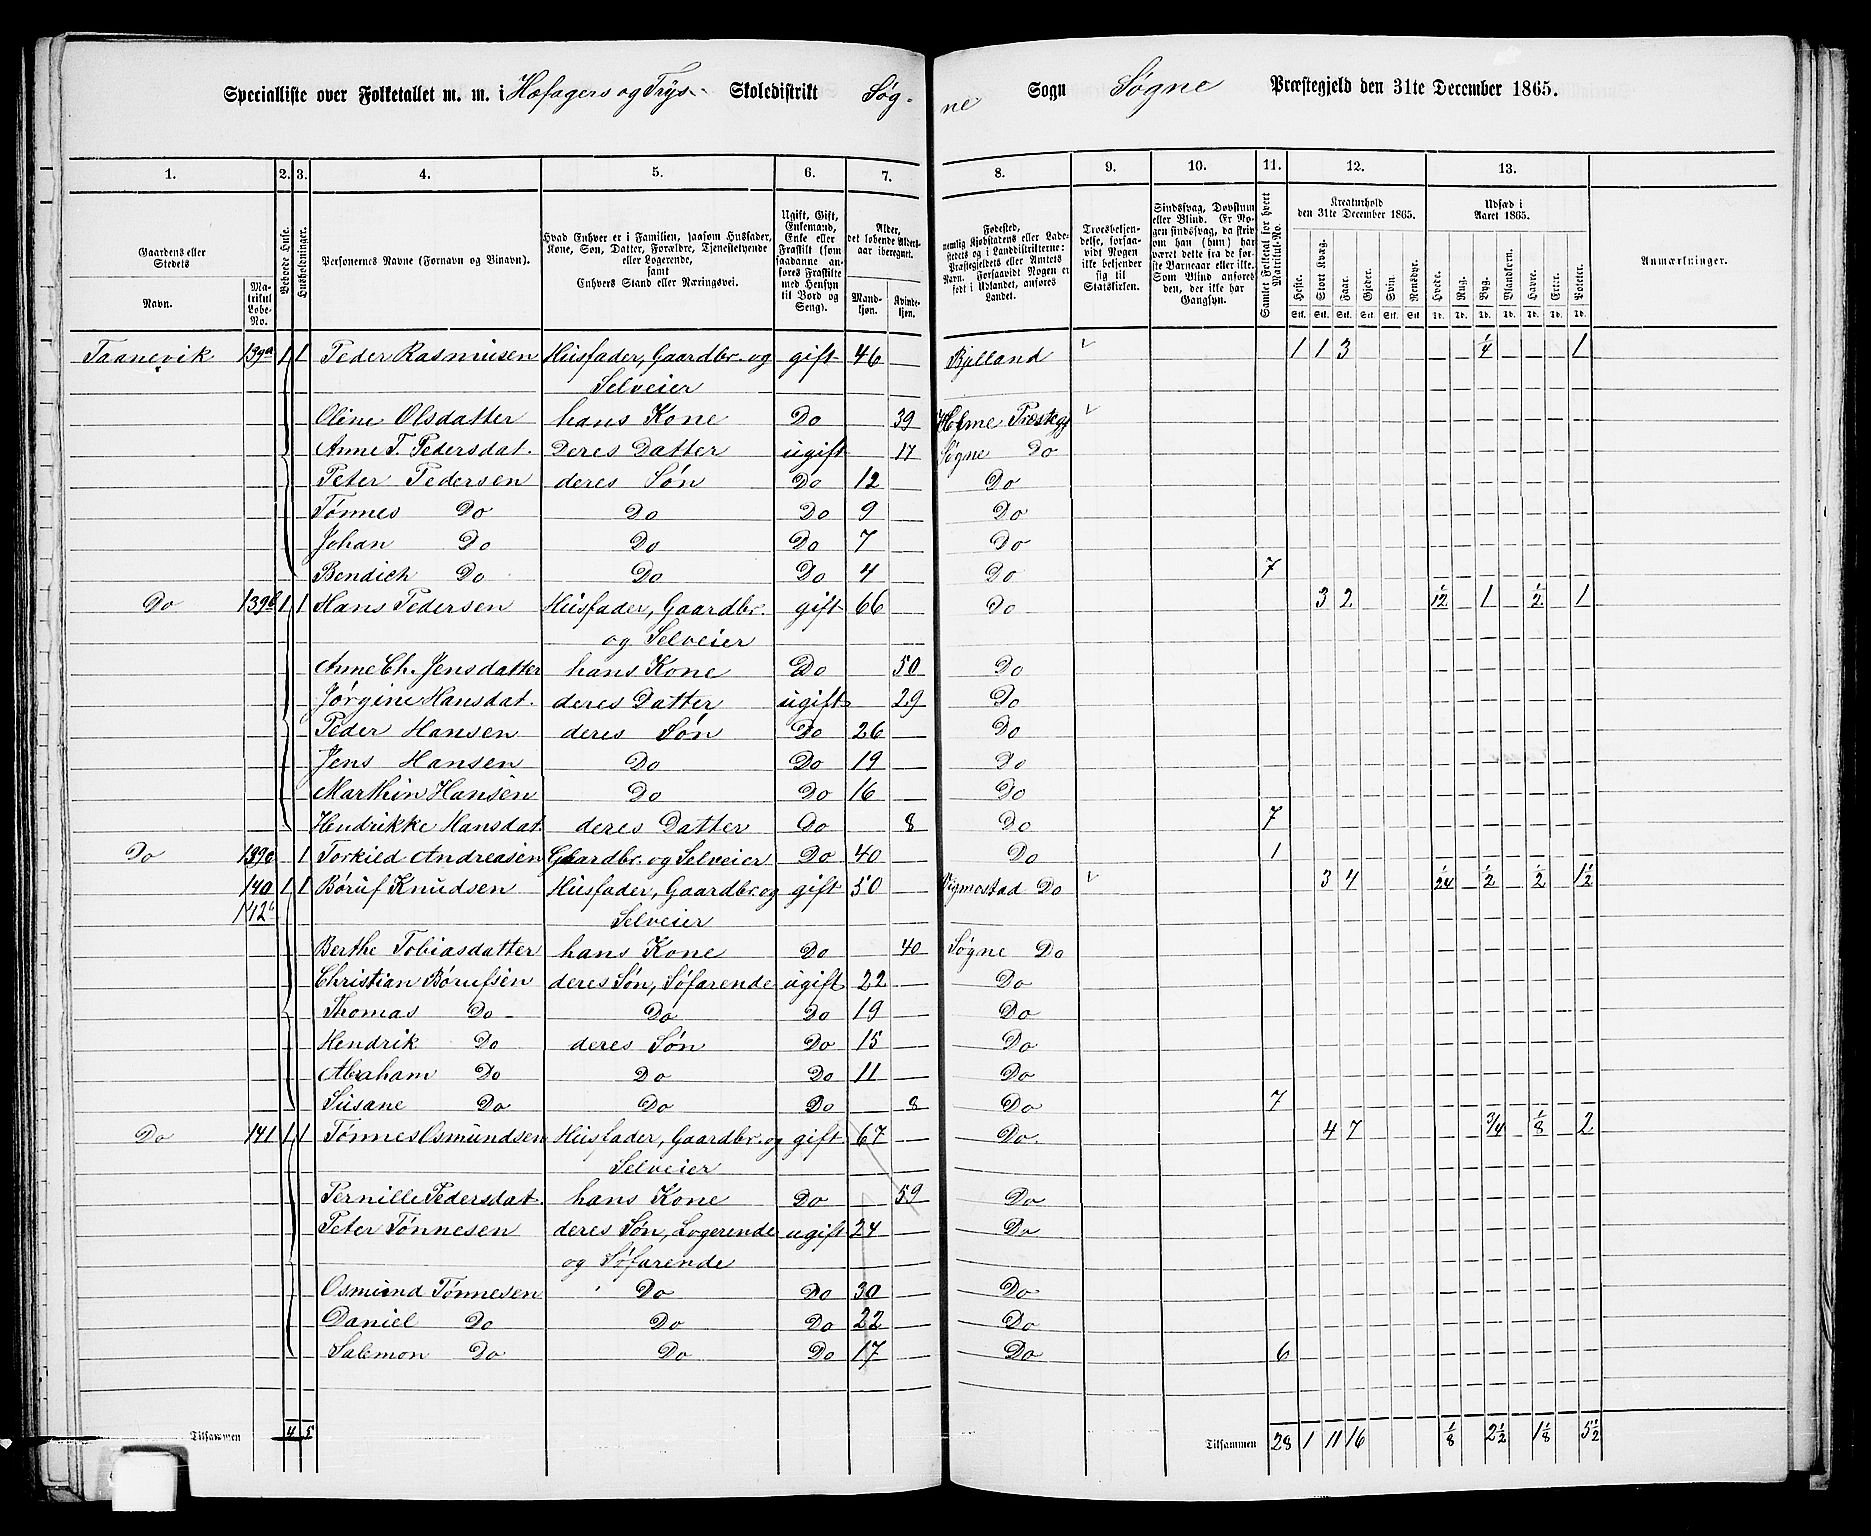 Specialliste over Folketallet m. m. i Høfagers og Trys- Skoledistrikt Søgne Sogn Søgne Præstegjeld den 31te December 1865.
1. 2. 3. 4. 5. 6. 7. 8. 9. 10. 11. 12. 13.
Gaardens eller Stedets
Navn.
Matrikul Løbe-No.
Beboede Huse.
Husholdninger.
Personernes Navne (Fornavn og Binavn).
Hvad Enhver er i Familien, saasom Husfader, Kone, Søn, Datter, Forældre, Tjenestetyende eller Logerende, samt Enhvers Stand eller Næringsvei.
Ugift, Gift, Enkemand, Enke eller Fraskilt (som saadanne anføres Fraskilte med Hensyn til Bord og Seng).
Alder, det løbende Aldersaar iberegnet.
Mandkjøn. Kvindekjøn.
Fødested, nemlig Kjøbstadens eller Ladestedets og i Landdistrikterne: Præstegjeldets eller Amtets Navn. Forsaavidt Nogen er født i Udlandet, anføres Landet.
Troesbekjendelse, forsaavidt Nogen ikke bekjender sig til Statskirken.
Sindssvag, Døvstum eller Blind. Er Nogen sindssvag, da skriv om han (hun) har været dette fra de første Barneaar eller ikke. Som Blind anføres den, der ikke har Gangsyn.
Samlet Folketal for hvert Matrikul-No.
Kreaturhold den 31te December 1865.
Heste. Stort Kvæg. Faar. Gjeder. Svin. Rensdyr.
Udsæd i Aaret 1865.
Hvede. Rug. Byg. Blandkorn. Havre. Erter. Poteter.
Anmærkninger.
Taanevik 139a 1 1 Peder Rasmusen Husfader, Gaardbr. og gift 46 Bjelland 1 1 3 1/4 1
Selveier
Oline Olsdatter hans Kone Do 39 Holme Præstegj
Anne T. Pedersdat. Deres Datter ugift 17 Søgne Do
Peter Pedersen deres Søn Do 12 Do
Tønnes Do Do Do 9 Do
Johan Do Do Do 7 Do
Bendich Do Do Do 4 Do 7
Do 139b 1 1 Hans Pedersen Husfader, Gaardbr. gift 66 Do 3 2 1/12 1 1/2 1
og Selveier
Anne Ch. Jensdatter hans Kone Do 50 Do
Jørgine Hansdat. deres Datter ugift 29 Do
Peder Hansen deres Søn Do 26 Do
Jens Hansen Do Do 19 Do
Marthin Hansen Do Do 16 Do
Hendrikke Hansdat. deres Datter Do 8 Do 7
Do 139c 1 Torkild Andreasen Gaardbr. og Selveier Do 40 Do 1
140 1 1 Børuf Knudsen Husfader, Gaardbr. og gift 50 Vigmostad Do 3 4 1/24 1/2 1/2 1 1/2
142c Selveier
Berthe Tobiasdatter hans Kone Do 40 Søgne Do
Christian Børufsen deres Søn, Søfarende ugift 22 Do
Thomas Do Do Do 19 Do
Hendrik Do deres Søn Do 15 Do
Abraham Do Do Do 11 Do
Susane Do Do Do 8 Do 7
Do 141 1 1 Tønnes Osmundsen Husfader, Gaardbr. og gift 67 Do. 4 7 3/4 1/8 2
Selveier
Pernille Pedersdat. hans Kone Do 59 Do
Peter Tønnesen deres Søn, Logerende ugift 24 Do
og Søfarende
Osmund Tønnesen Do Do 30 Do
Daniel Do Do Do 22 Do
Salemon Do Do Do 17 Do 6
Tilsammen 4 5 Tilsammen 28 1 11 16 1/8 2 1/2 1 1/8 5 1/2